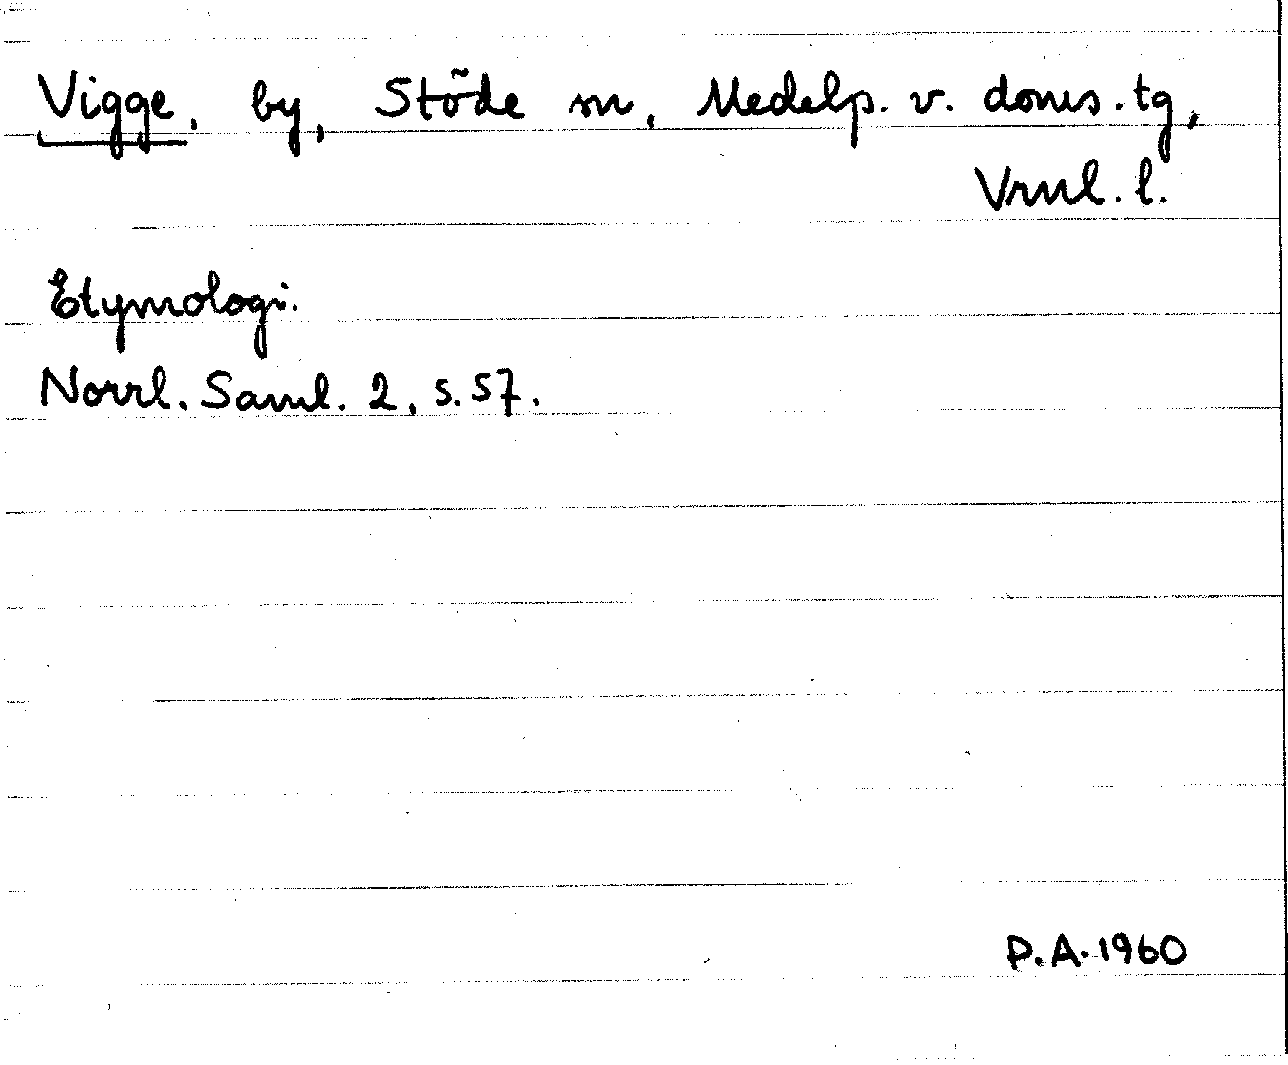 Vigge, by, Stöde sn, Medelp. v. doms.tg,
Vrnl. l.
Etymologi.
Norrl. Saml. 2, s. 57.
P.A. 1960